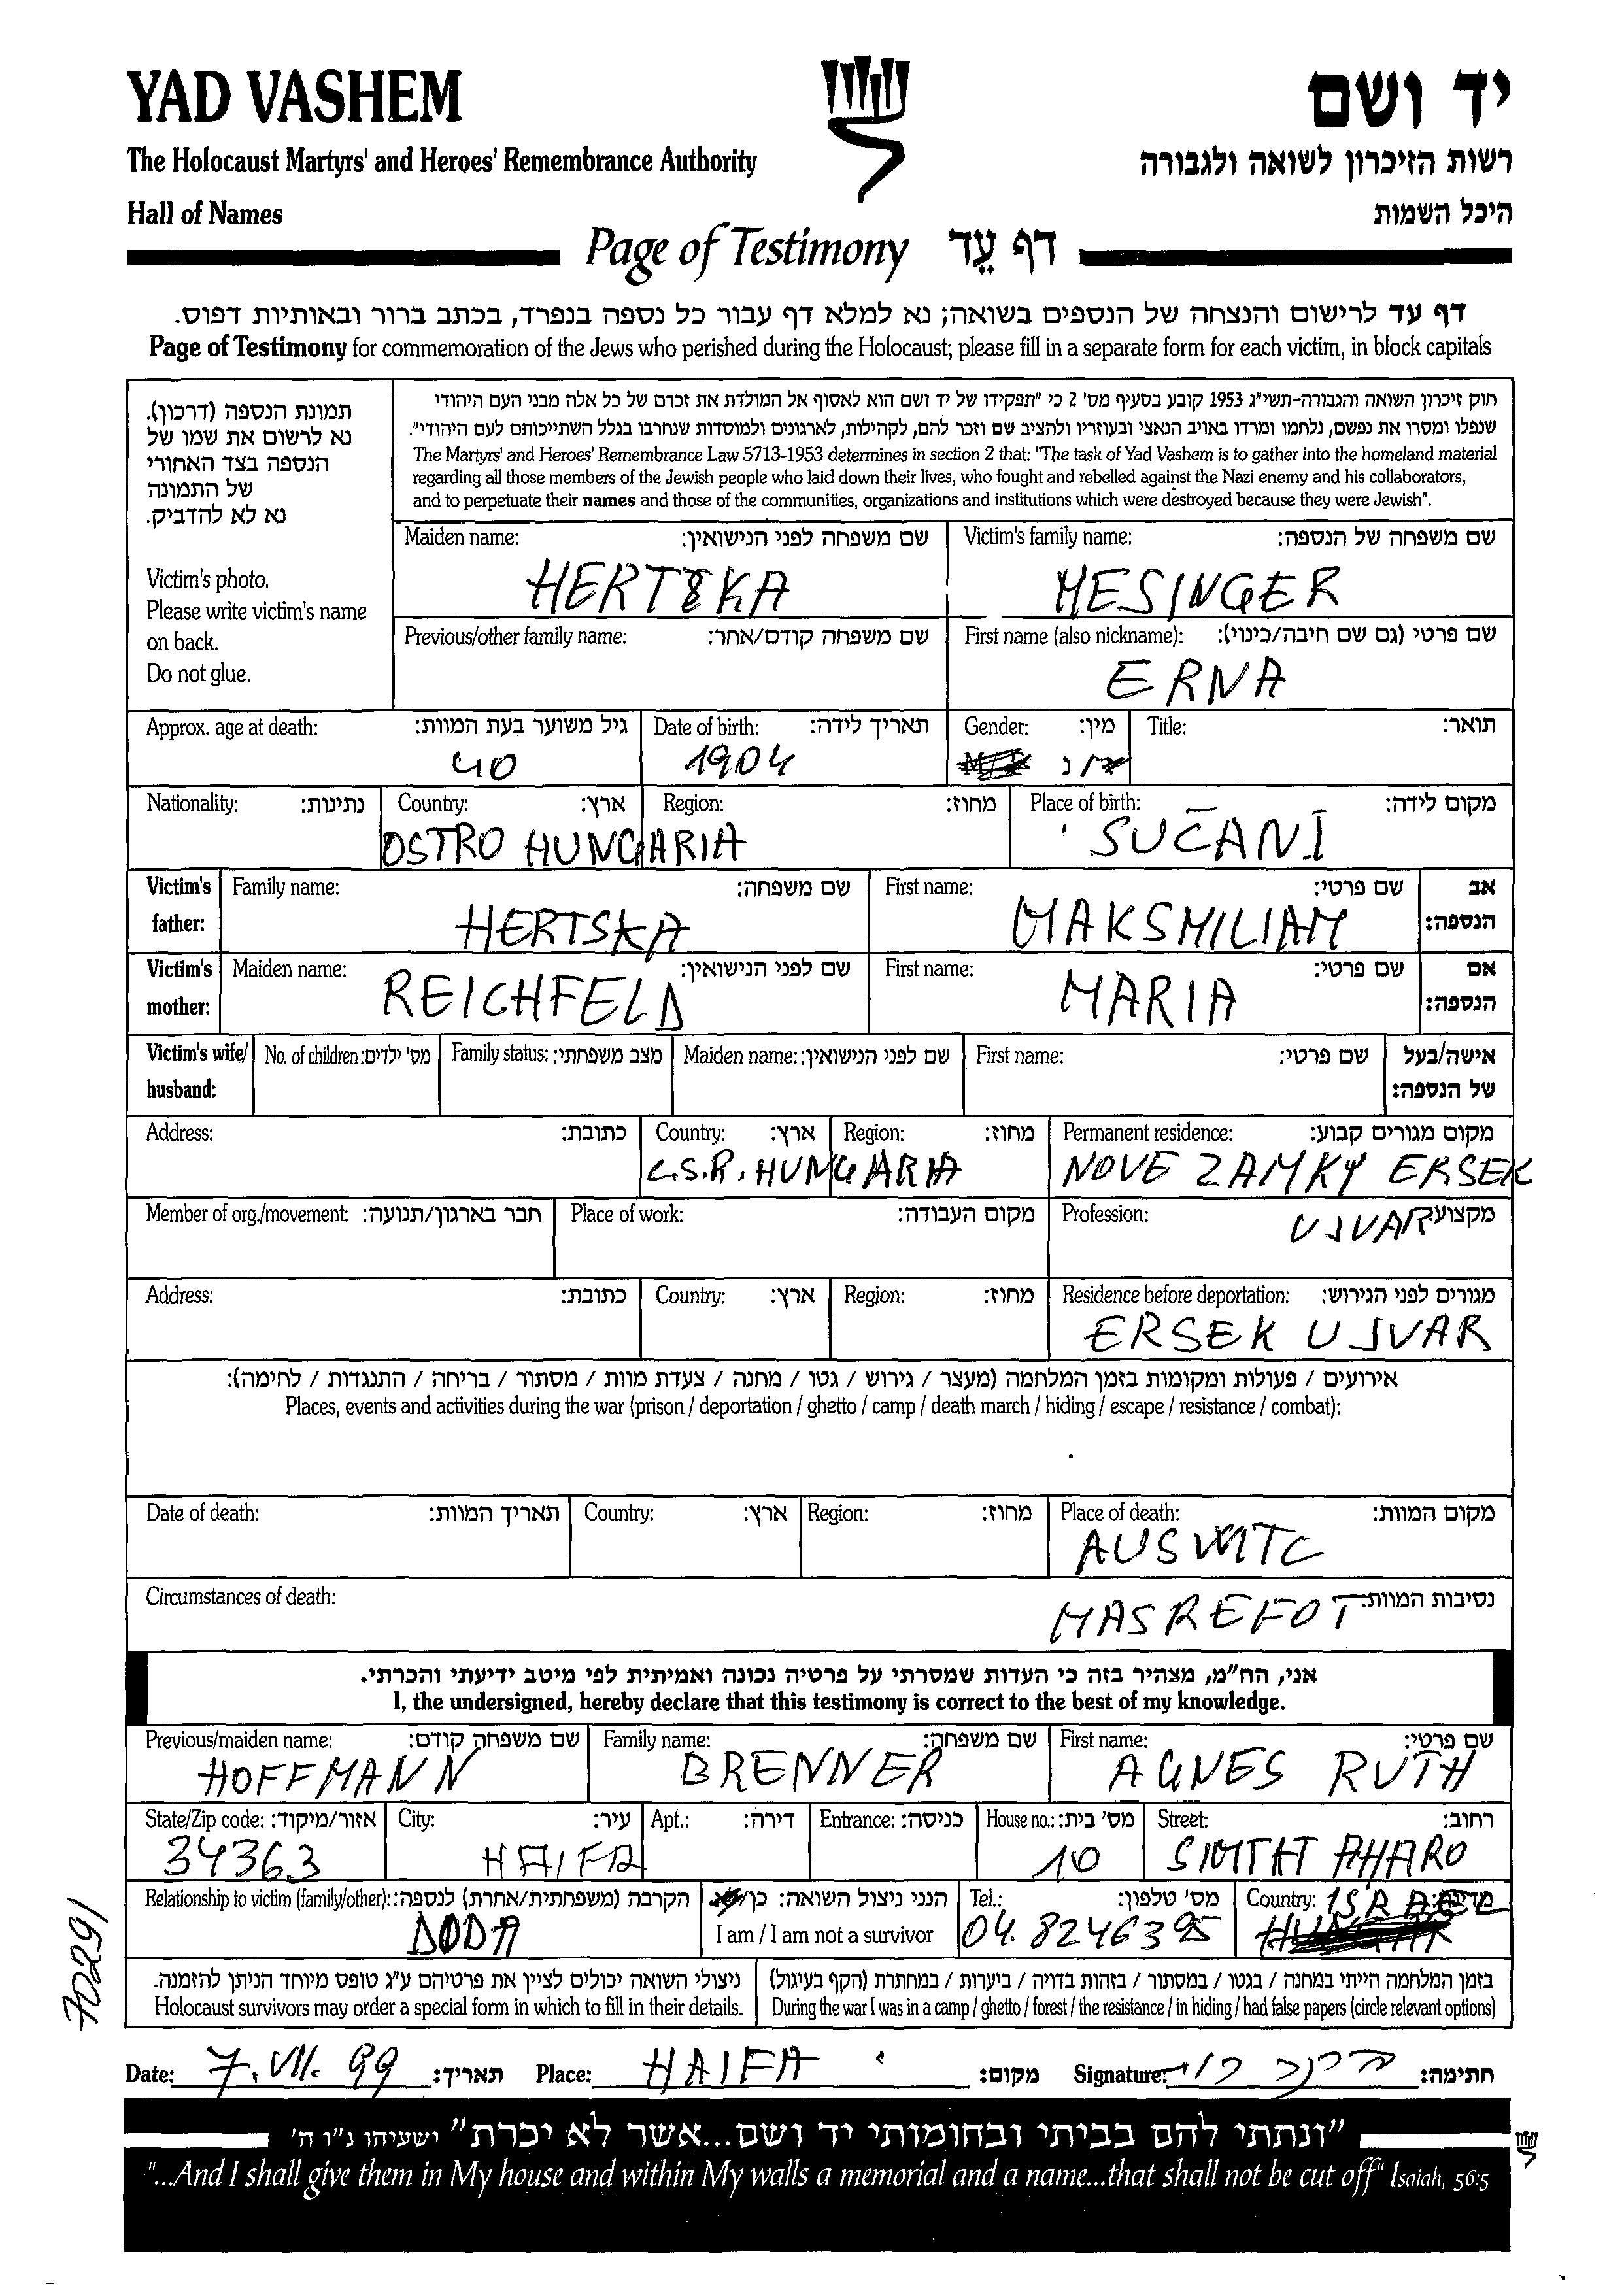 YAD VASHEM
יד ושם
The Holocaust Martyrs' and Heroes' Remembrance Authority
רשות הזיכרון לשואה ולגבורה
Hall of Names
היכל השמות
Page of Testimony דף עֵד
דף עד לרישום והנצחה של הנספים בשואה; נא למלא דף עבור כל נספה בנפרד, בכתב ברור ובאותיות דפוס.
Page of Testimony for commemoration of the Jews who perished during the Holocaust; please fill in a separate form for each victim, in block capitals
תמונת הנספה (דרכון).
נא לרשום את שמו של
הנספה בצד האחורי
של התמונה
נא לא להדביק.
Victim's photo.
Please write victim's name
on back.
Do not glue.
חוק זיכרון השואה והגבורה-תשי"ג 1953 קובע בסעיף מס' 2 כי "תפקידו של יד ושם הוא לאסוף אל המולדת את זכרם של כל אלה מבני העם היהודי
שנפלו ומסרו את נפשם, נלחמו ומרדו באויב הנאצי ובעוזריו ולהציב שם וזכר להם, לקהילות, לארגונים ולמוסדות שנחרבו בגלל השתייכותם לעם היהודי".
The Martyrs' and Heroes' Remembrance Law 5713-1953 determines in section 2 that: "The task of Yad Vashem is to gather into the homeland material
regarding all those members of the Jewish people who laid down their lives, who fought and rebelled against the Nazi enemy and his collaborators,
and to perpetuate their names and those of the communities, organizations and institutions which were destroyed because they were Jewish".
Maiden name: שם משפחה לפני הנישואין:
HERTSKA
Victim's family name: שם משפחה של הנספה:
MESINGER
Previous/other family name: שם משפחה קודם/אחר:
First name (also nickname): שם פרטי (גם שם חיבה/כינוי):
ERNA
Approx. age at death: גיל משוער בעת המוות:
40
Date of birth: תאריך לידה:
1904
Gender: מין:
ז/נ
Title: תואר:
Nationality: נתינות:
Country: ארץ:
Region: מחוז:
OSTRO HUNGARIA
Place of birth: מקום לידה:
SUČANI
Victim's father:
Family name: שם משפחה:
HERTSKA
First name: שם פרטי:
MAKSMILIAM
אב הנספה:
Victim's mother:
Maiden name: שם לפני הנישואין:
REICHFELD
First name: שם פרטי:
MARIA
אם הנספה:
Victim's wife/ husband:
No. of children: מס' ילדים:
Family status: מצב משפחתי:
Maiden name: שם לפני הנישואין:
First name: שם פרטי:
אישה/בעל של הנספה:
Address: כתובת:
Country: ארץ:
Region: מחוז:
C.S.R. HUNGARIA
Permanent residence: מקום מגורים קבוע:
NOVE ZAMKY ERSEK
UJVAR
Member of org./movement: חבר בארגון/תנועה:
Place of work: מקום העבודה:
Profession: מקצוע:
Address: כתובת:
Country: ארץ:
Region: מחוז:
Residence before deportation: מגורים לפני הגירוש:
ERSEK UJVAR
אירועים / פעולות ומקומות בזמן המלחמה (מעצר / גירוש / גטו / מחנה / צעדת מוות / מסתור / בריחה / התנגדות / לחימה):
Places, events and activities during the war (prison / deportation / ghetto / camp / death march / hiding / escape / resistance / combat):
Date of death: תאריך המוות:
Country: ארץ:
Region: מחוז:
Place of death: מקום המוות:
AUSWITC
Circumstances of death: נסיבות המוות:
MASREFOT
אני, הח"מ, מצהיר בזה כי העדות שמסרתי על פרטיה נכונה ואמיתית לפי מיטב ידיעתי והכרתי.
I, the undersigned, hereby declare that this testimony is correct to the best of my knowledge.
Previous/maiden name: שם משפחה קודם:
HOFFMANN
Family name: שם משפחה:
BRENNER
First name: שם פרטי:
AGNES RUTH
State/Zip code: אזור/מיקוד:
34363
City: עיר:
HAIFA
Apt.: דירה:
Entrance: כניסה:
House no.: מס' בית:
10
Street: רחוב:
SIMTAT PHARO
Relationship to victim (family/other): הקרבה (משפחתית/אחרת) לנספה:
DODA
הנני ניצול השואה: כן/
I am / I am not a survivor
Tel.: מס' טלפון:
04. 8246395
Country: מדינה:
ISRAEL
בזמן המלחמה הייתי במחנה / בגטו / במסתור / בזהות בדויה / ביערות / במחתרת (הקף בעיגול)
During the war I was in a camp / ghetto / forest / the resistance / in hiding / had false papers (circle relevant options)
ניצולי השואה יכולים לציין את פרטיהם ע"ג טופס מיוחד הניתן להזמנה.
Holocaust survivors may order a special form in which to fill in their details.
70291
Date: 7. VII. 99 תאריך: Place: HAIFA מקום: Signature: ברנר רות חתימה:
"ונתתי להם בביתי ובחומותי יד ושם...אשר לא יכרת" ישעיהו נ"ו ה'
"...And I shall give them in My house and within My walls a memorial and a name...that shall not be cut off" Isaiah, 56:5